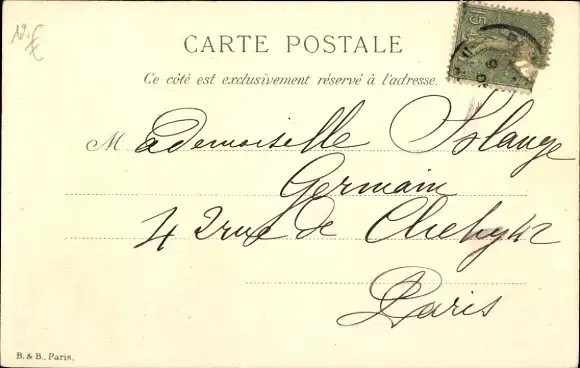 12 €
15
CARTE POSTALE
Ce côté est exclusivement réservé à l'adresse.
Mademoiselle Solange
Germain
42 rue de Clichy 42
Paris
B. & B., Paris.